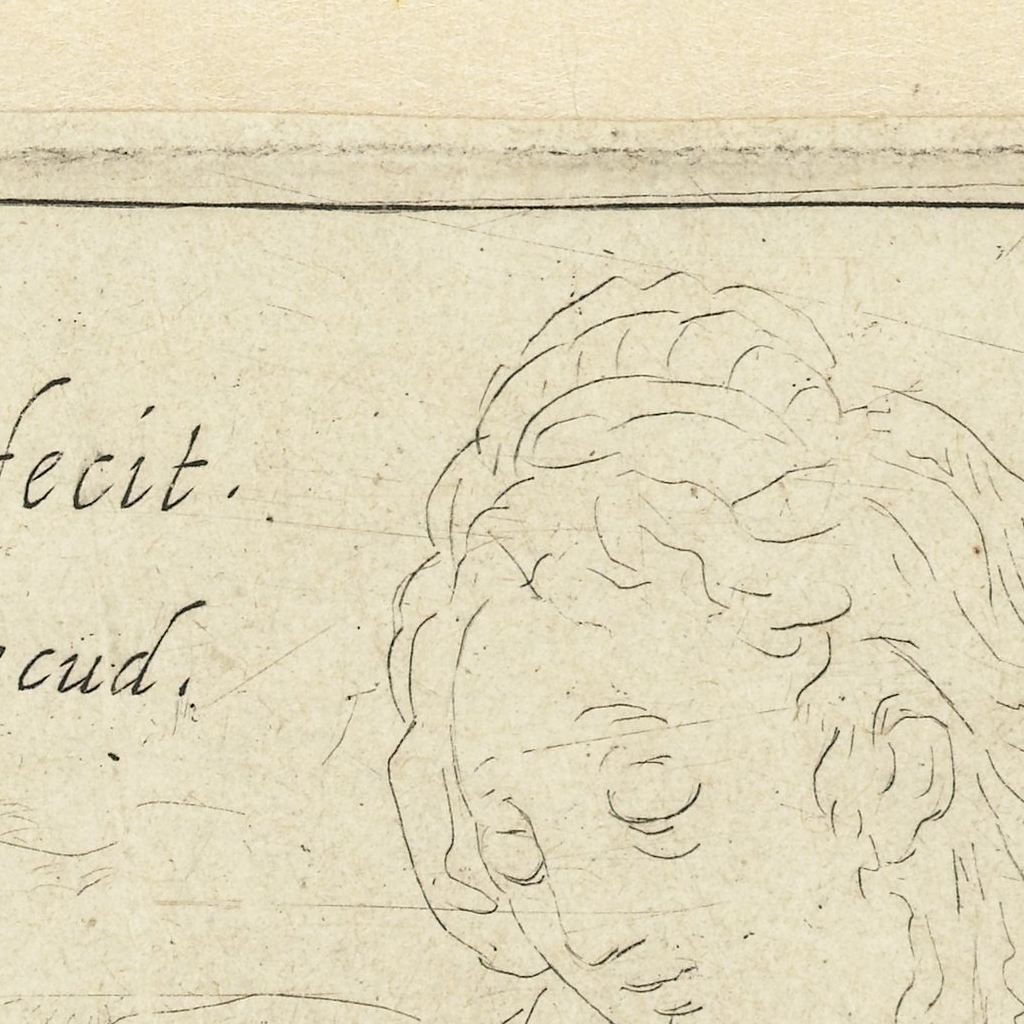 fecit.
cud.